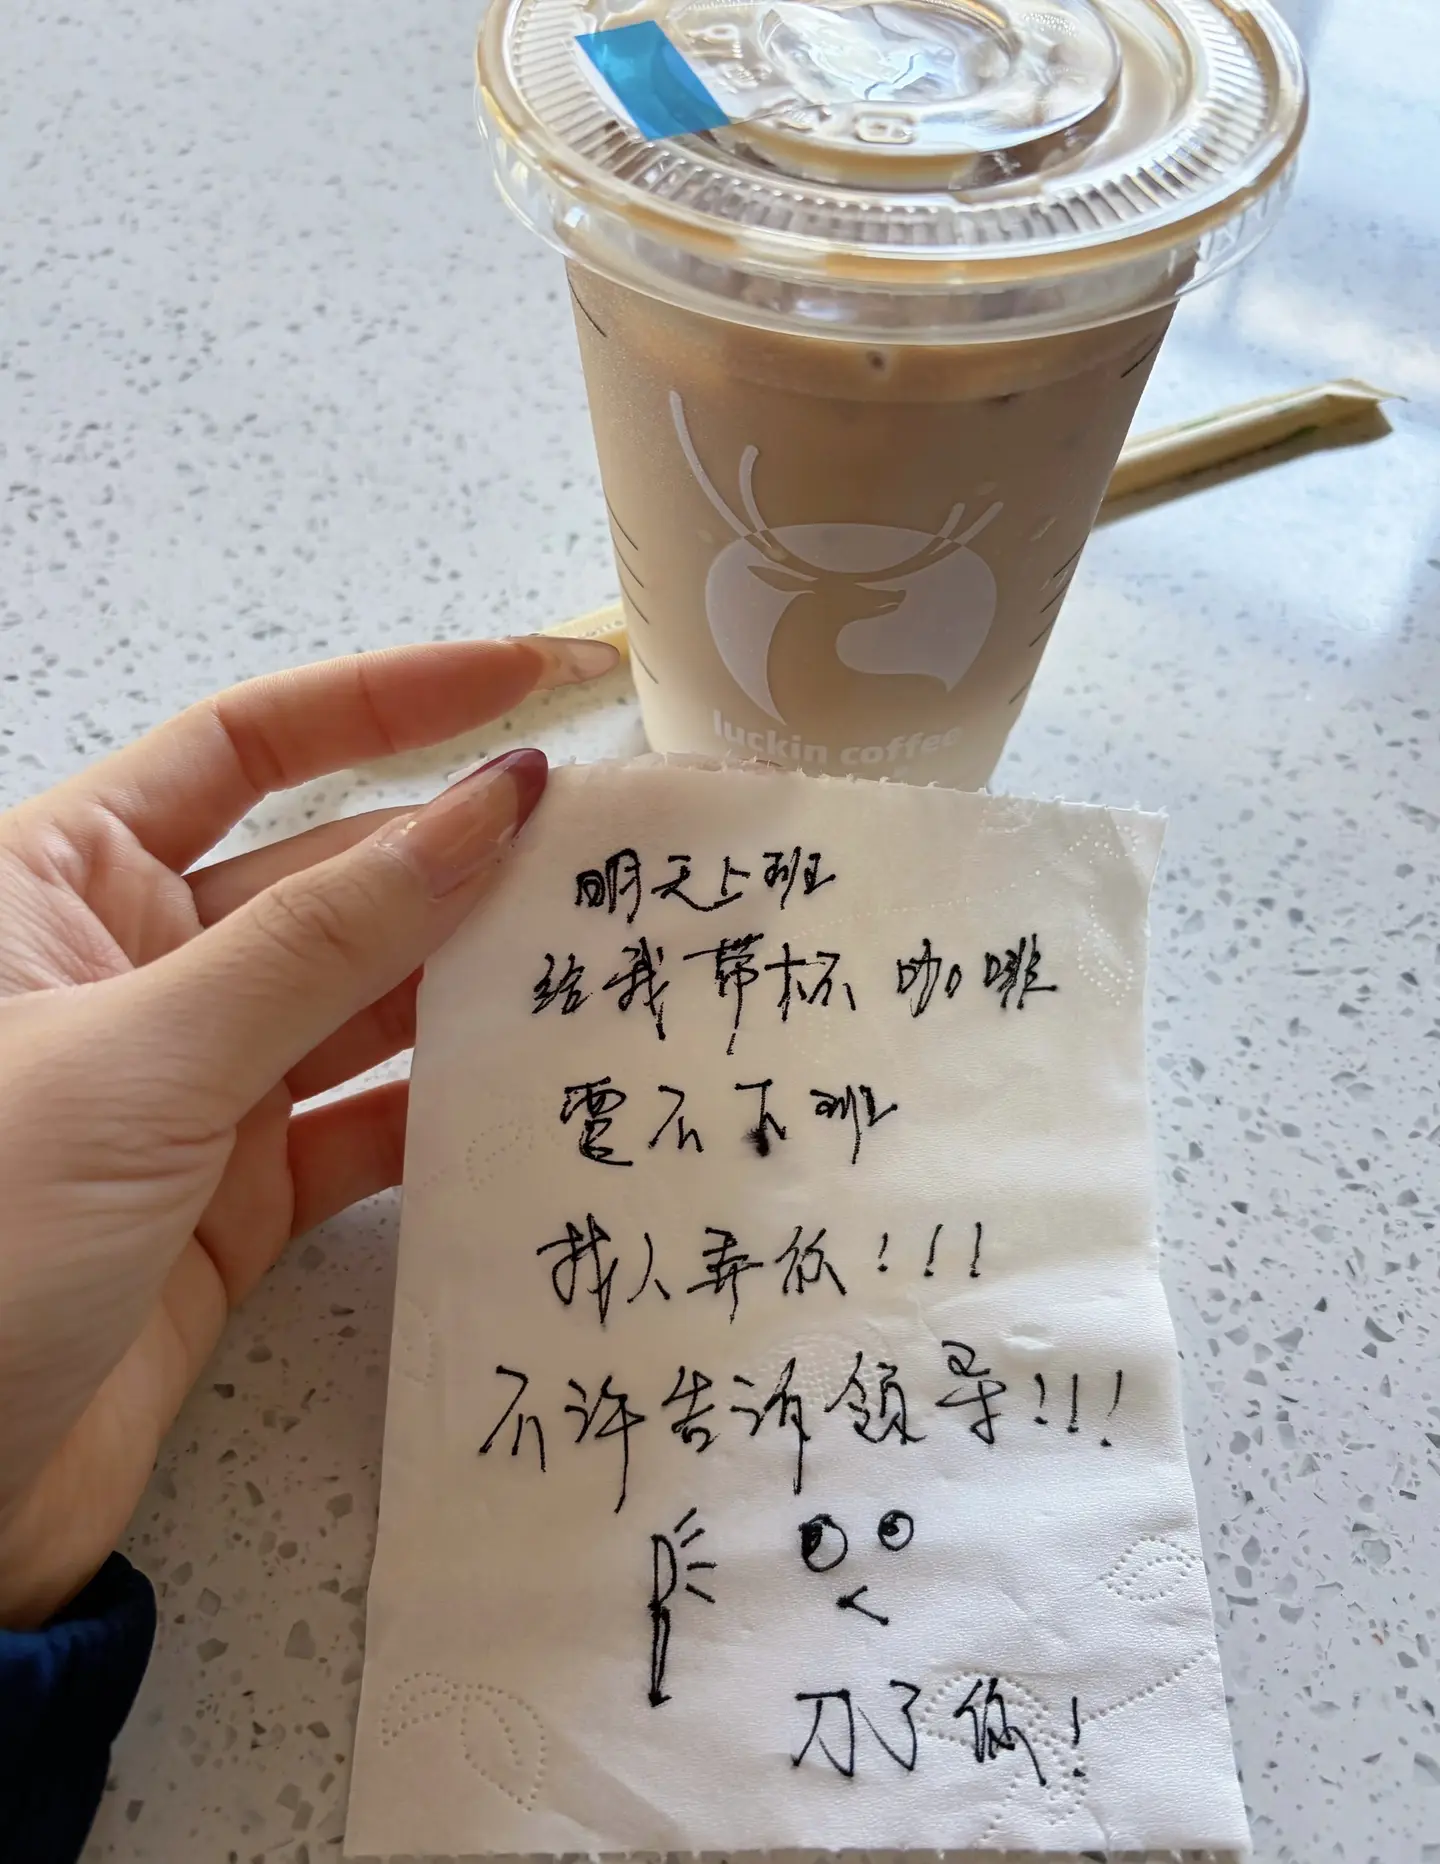 luckin coffee
明天上班
给我带杯咖啡
要不下班
找人弄你!!!
不许告诉领导!!!
刀了你!